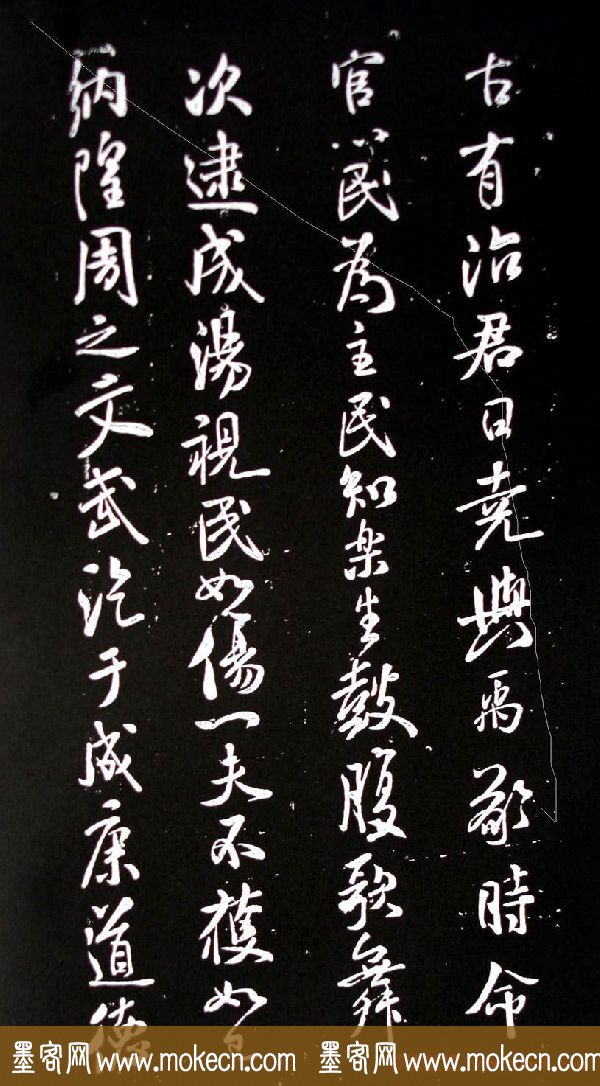 古有治君曰尧與禹敬時命
官以民為主民知樂生鼓腹歌舞
次逮成湯視民如傷一夫不獲如己
納隍周之文武汔于成康道德
墨客网 www.mokecn.com 墨客网 www.mokecn.com